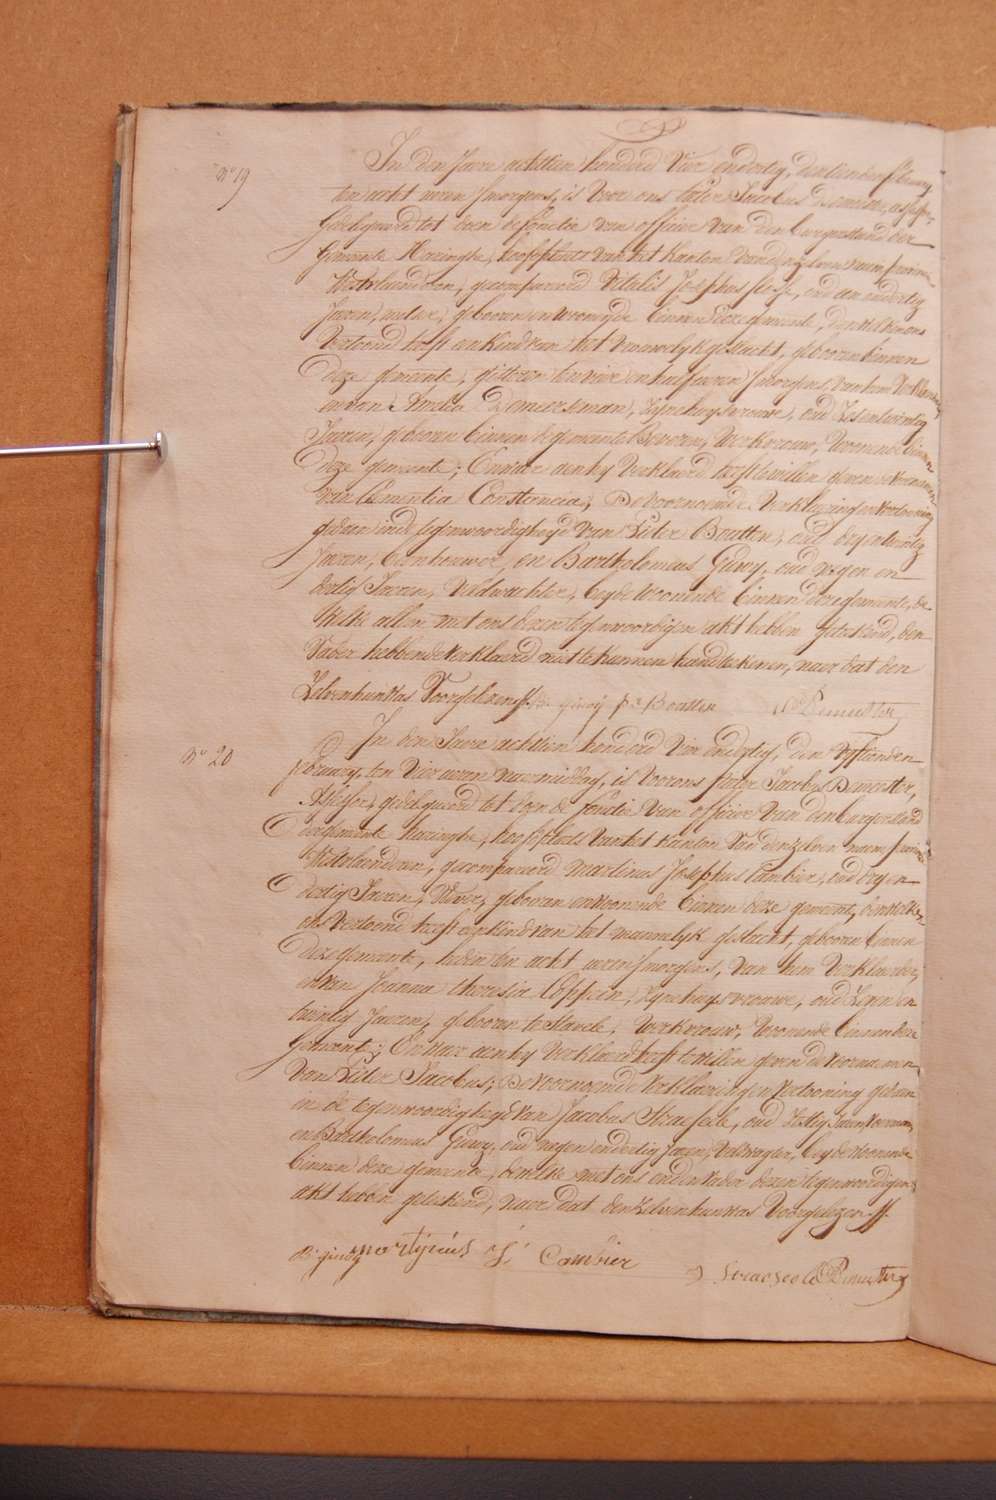 N° 19
In den Jaere achttien honderd Vier endertig, den tienden februari
ten acht uren smorgens, is voor ons Pieter Jacobus Demeester, assessor,
gedelegueerd tot doen de fonctie van officier van den burgerstand der
gemeente Haringhe, hoofdplaats van het kanton van denzelven naem, provincie
Westvlaenderen, gecompareerd Vitalis Josephus, oud een endertig
Jaeren, geboren en woonende binnen deze gemeente, denwelken ons
Vertoond heeft een kind van het Vrouwelyk geslacht, geboren binnen
deze gemeente, gisteren ten vier en half uren smorgens, van hem Verklaerder,
en van Amelia Demeersman, zyne huysvrouwe, oud zesentwintig
Jaeren, geboren binnen de gemeente Beveren, Werkvrouw, woonende binnen
deze gemeente; En waer aen hy Verklaerd heeft te willen geven de Voornamen
van Clementia Constancia; De voornoemde Verklaering en Vertooning
gedaen in de tegenwoordigheyd van Pieter Boutten, oud dryentwintig
Jaeren, en Bartholomeus Giwy, oud negen en
dertig Jaeren, Veldwachter, beyde woonende binnen deze gemeente, de
Welke allen met ons dezen tegenwoordigen akt hebben geteekend, den
Vader hebbende verklaerd niet te kunnen handteekenen, naer dat den
Zelven hun was Voorgelezen //. B: giwy P: Boutten PDemeester
N° 20
In den Jaere achttien honderd Vier endertig, den vyftienden
februari, ten Vier uren naermiddag, is voor ons Pieter Jacobus Demeester,
Assessor, gedelegueerd tot doen de fonctie van officier van den burgerstand
der gemeente Haringhe, hoofdplaats van het kanton van denzelven naem, provincie
Westvlaenderen, gecompareerd Martinus Josephus Cambier, oud dry en
dertig Jaeren, Wever, geboren en woonende binnen deze gemeente, denwelken
ons Vertoond heeft een kind van het mannelyk geslacht, geboren binnen
deze gemeente, heden ten acht uren smorgens, van hem Verklaerder,
en van Joanna Theresia Coppein, zyne huysvrouwe, oud zeven en
twintig Jaeren, geboren te Stavele, Werkvrouw, Woonende binnen deze
gemeente; En waer aen hy Verklaerd heeft te willen geven de voornamen
van Pieter Jacobus; De voornoemde Verklaering en Vertooning gedaen
in de tegenwoordigheyd van Jacobus Straeseele, oud zestig Jaeren,
en Bartholomeus Giwy, oud negen endertig Jaeren, Veldwagter, beyde woonende
binnen deze gemeente, dewelke met ons en den Vader dezen tegenwoordigen
akt hebben geteekend, naer dat denzelven hun was Voorgelezen //.
B: giwy martijnus J: Cambier
J Straeseele PDemeester